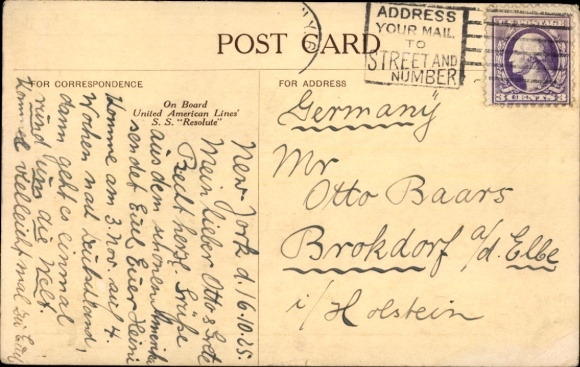 N.Y.
ADDRESS
YOUR MAIL
TO
STREET AND
NUMBER
POST CARD
FOR CORRESPONDENCE
On Board
United American Lines'
S. S. "Resolute"
New York d. 16.10.25.
Mein lieber Otto & Grete
Recht herzl. Grüße
aus dem schönen Amerika
sendet Euch Euer Heini
Komme am 3. Nov. auf 4
Wochen nach Deutschland,
dann geht es einmal
rund um die Welt
Komme vielleicht mal zu Euch
FOR ADDRESS
Germany
Mr
Otto Baars
Brokdorf a/d. Elbe
i/Holstein
3 CENTS 3